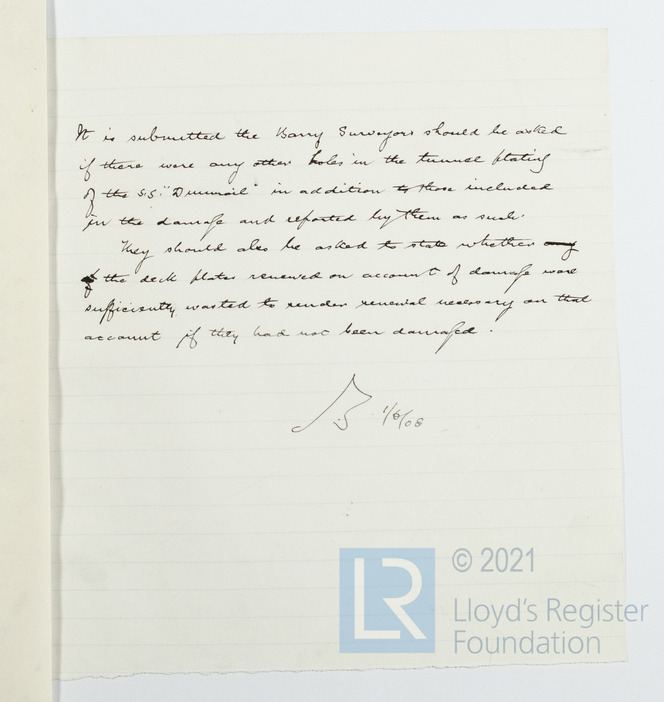 It is submitted the Barry Surveyors should be asked
if there were any other holes in the tunnel plating
of the S.S. "Dunmail" in addition to those included
in the damage and reported by them as such.
They should also be asked to state whether any
of the deck plates renewed on account of damage were
sufficiently wasted to render renewal necessary on that
account if they had not been damaged.
1/6/08
LR
© 2021
Lloyd's Register
Foundation